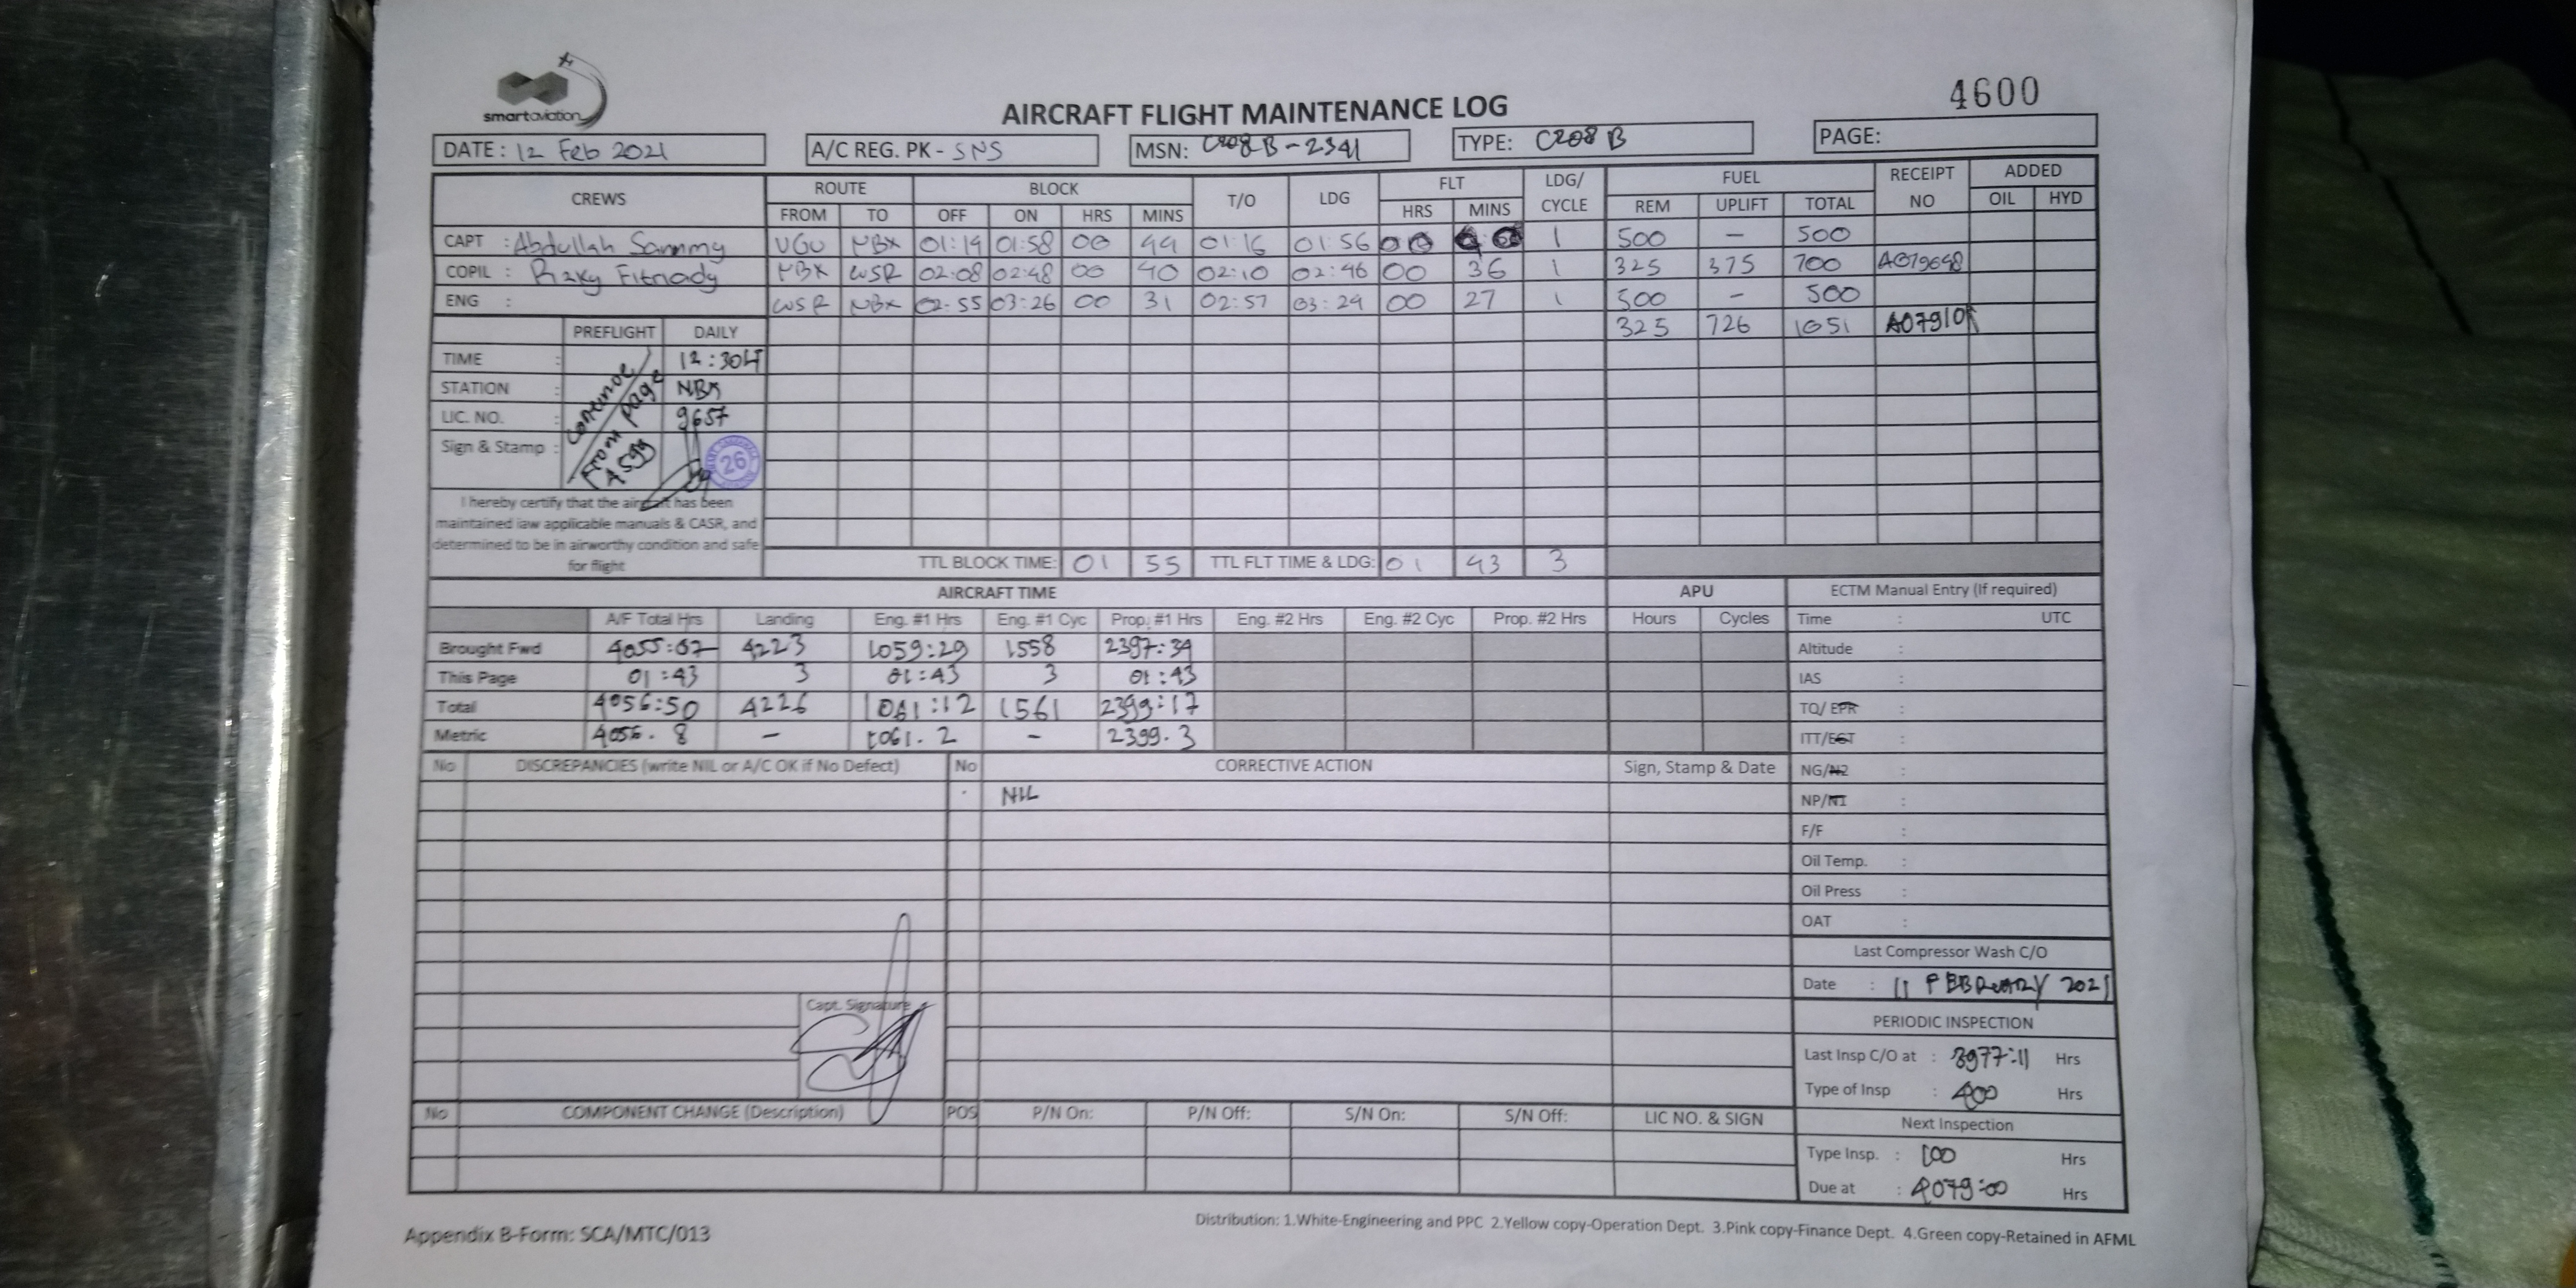 smartaviation
4600
AIRCRAFT FLIGHT MAINTENANCE LOG
DATE : 12 Feb 2021 A/C REG. PK - SNS MSN: C208B-2341 TYPE: C208B PAGE:
CREWS ROUTE BLOCK T/O LDG FLT LDG/ CYCLE FUEL RECEIPT NO ADDED
FROM TO OFF ON HRS MINS HRS MINS REM UPLIFT TOTAL OIL HYD
CAPT : Abdullah Sammy UGU NBX 01:14 01:58 00 44 01:16 01:56 1 500 - 500
COPIL : Rizky Fitriady NBX WSR 02:08 02:48 00 40 02:10 02:46 00 36 1 325 375 700
ENG : WSR NBX 02:55 03:26 00 31 02:57 03:24 00 27 1 500 - 500
325 726 1051
PREFLIGHT DAILY
TIME : 12:30LT
STATION : NBX
LIC. NO. : 9657
Sign & Stamp : 26
continue from page 4599
I hereby certify that the aircraft has been
maintained iaw applicable manuals & CASR, and
determined to be in airworthy condition and safe
for flight
TTL BLOCK TIME: 01 55 TTL FLT TIME & LDG: 01 43 3
AIRCRAFT TIME APU ECTM Manual Entry (If required)
A/F Total Hrs Landing Eng. #1 Hrs Eng. #1 Cyc Prop. #1 Hrs Eng. #2 Hrs Eng. #2 Cyc Prop. #2 Hrs Hours Cycles Time : UTC
Brought Fwd 4055:07 4223 1059:29 1558 2397:34 Altitude :
This Page 01:43 3 01:43 3 01:43 IAS :
Total 4056:50 4226 1061:12 1561 2399:17 TQ/ EPR :
Metric 4056.8 - 1061.2 - 2399.3 ITT/EGT :
No DISCREPANCIES (write NIL or A/C OK if No Defect) No CORRECTIVE ACTION Sign, Stamp & Date NG/N2 :
NIL NP/N1 :
F/F :
Oil Temp. :
Oil Press :
OAT :
Last Compressor Wash C/O
Date : 11 FEBRUARY 2021
Capt. Signature
PERIODIC INSPECTION
Last Insp C/O at : 3977:11 Hrs
Type of Insp : 400 Hrs
No COMPONENT CHANGE (Description) POS P/N On: P/N Off: S/N On: S/N Off: LIC NO. & SIGN Next Inspection
Type Insp. : 100 Hrs
Due at : 4079:00 Hrs
Appendix B-Form: SCA/MTC/013 Distribution: 1.White-Engineering and PPC 2.Yellow copy-Operation Dept. 3.Pink copy-Finance Dept. 4.Green copy-Retained in AFML